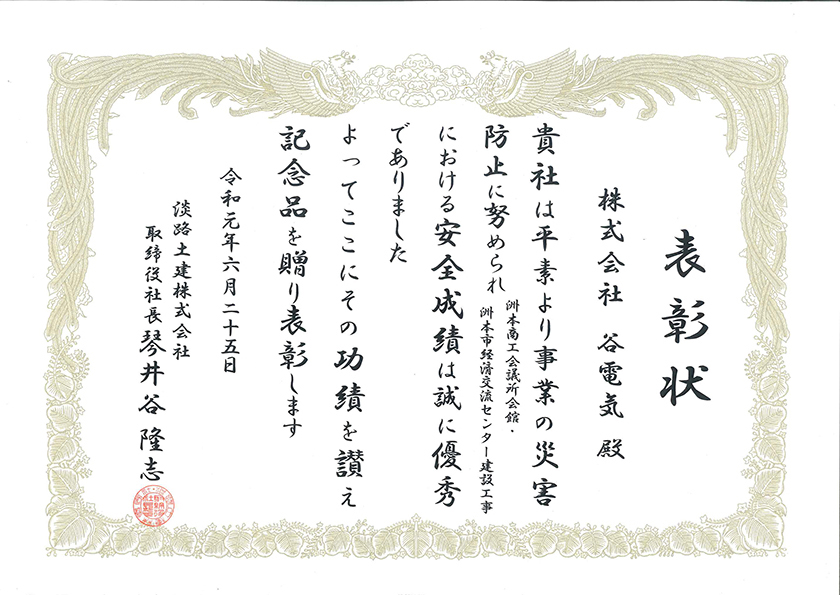 表彰状
株式会社 谷電気 殿
貴社は平素より事業の災害
防止に努められ
洲本商工会議所会館・
洲本市経済交流センター建設工事
における安全成績は誠に優秀
でありました
よってここにその功績を讃え
記念品を贈り表彰します
令和元年六月二十五日
淡路土建株式会社
取締役社長 琴井谷隆志